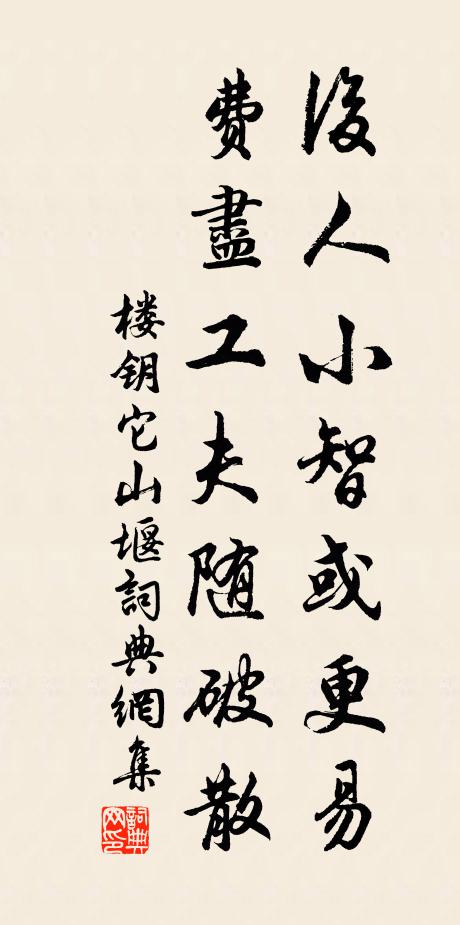 後人小智或更易
費盡工夫随破散
楼钥它山堰詞典網集
詞典網印